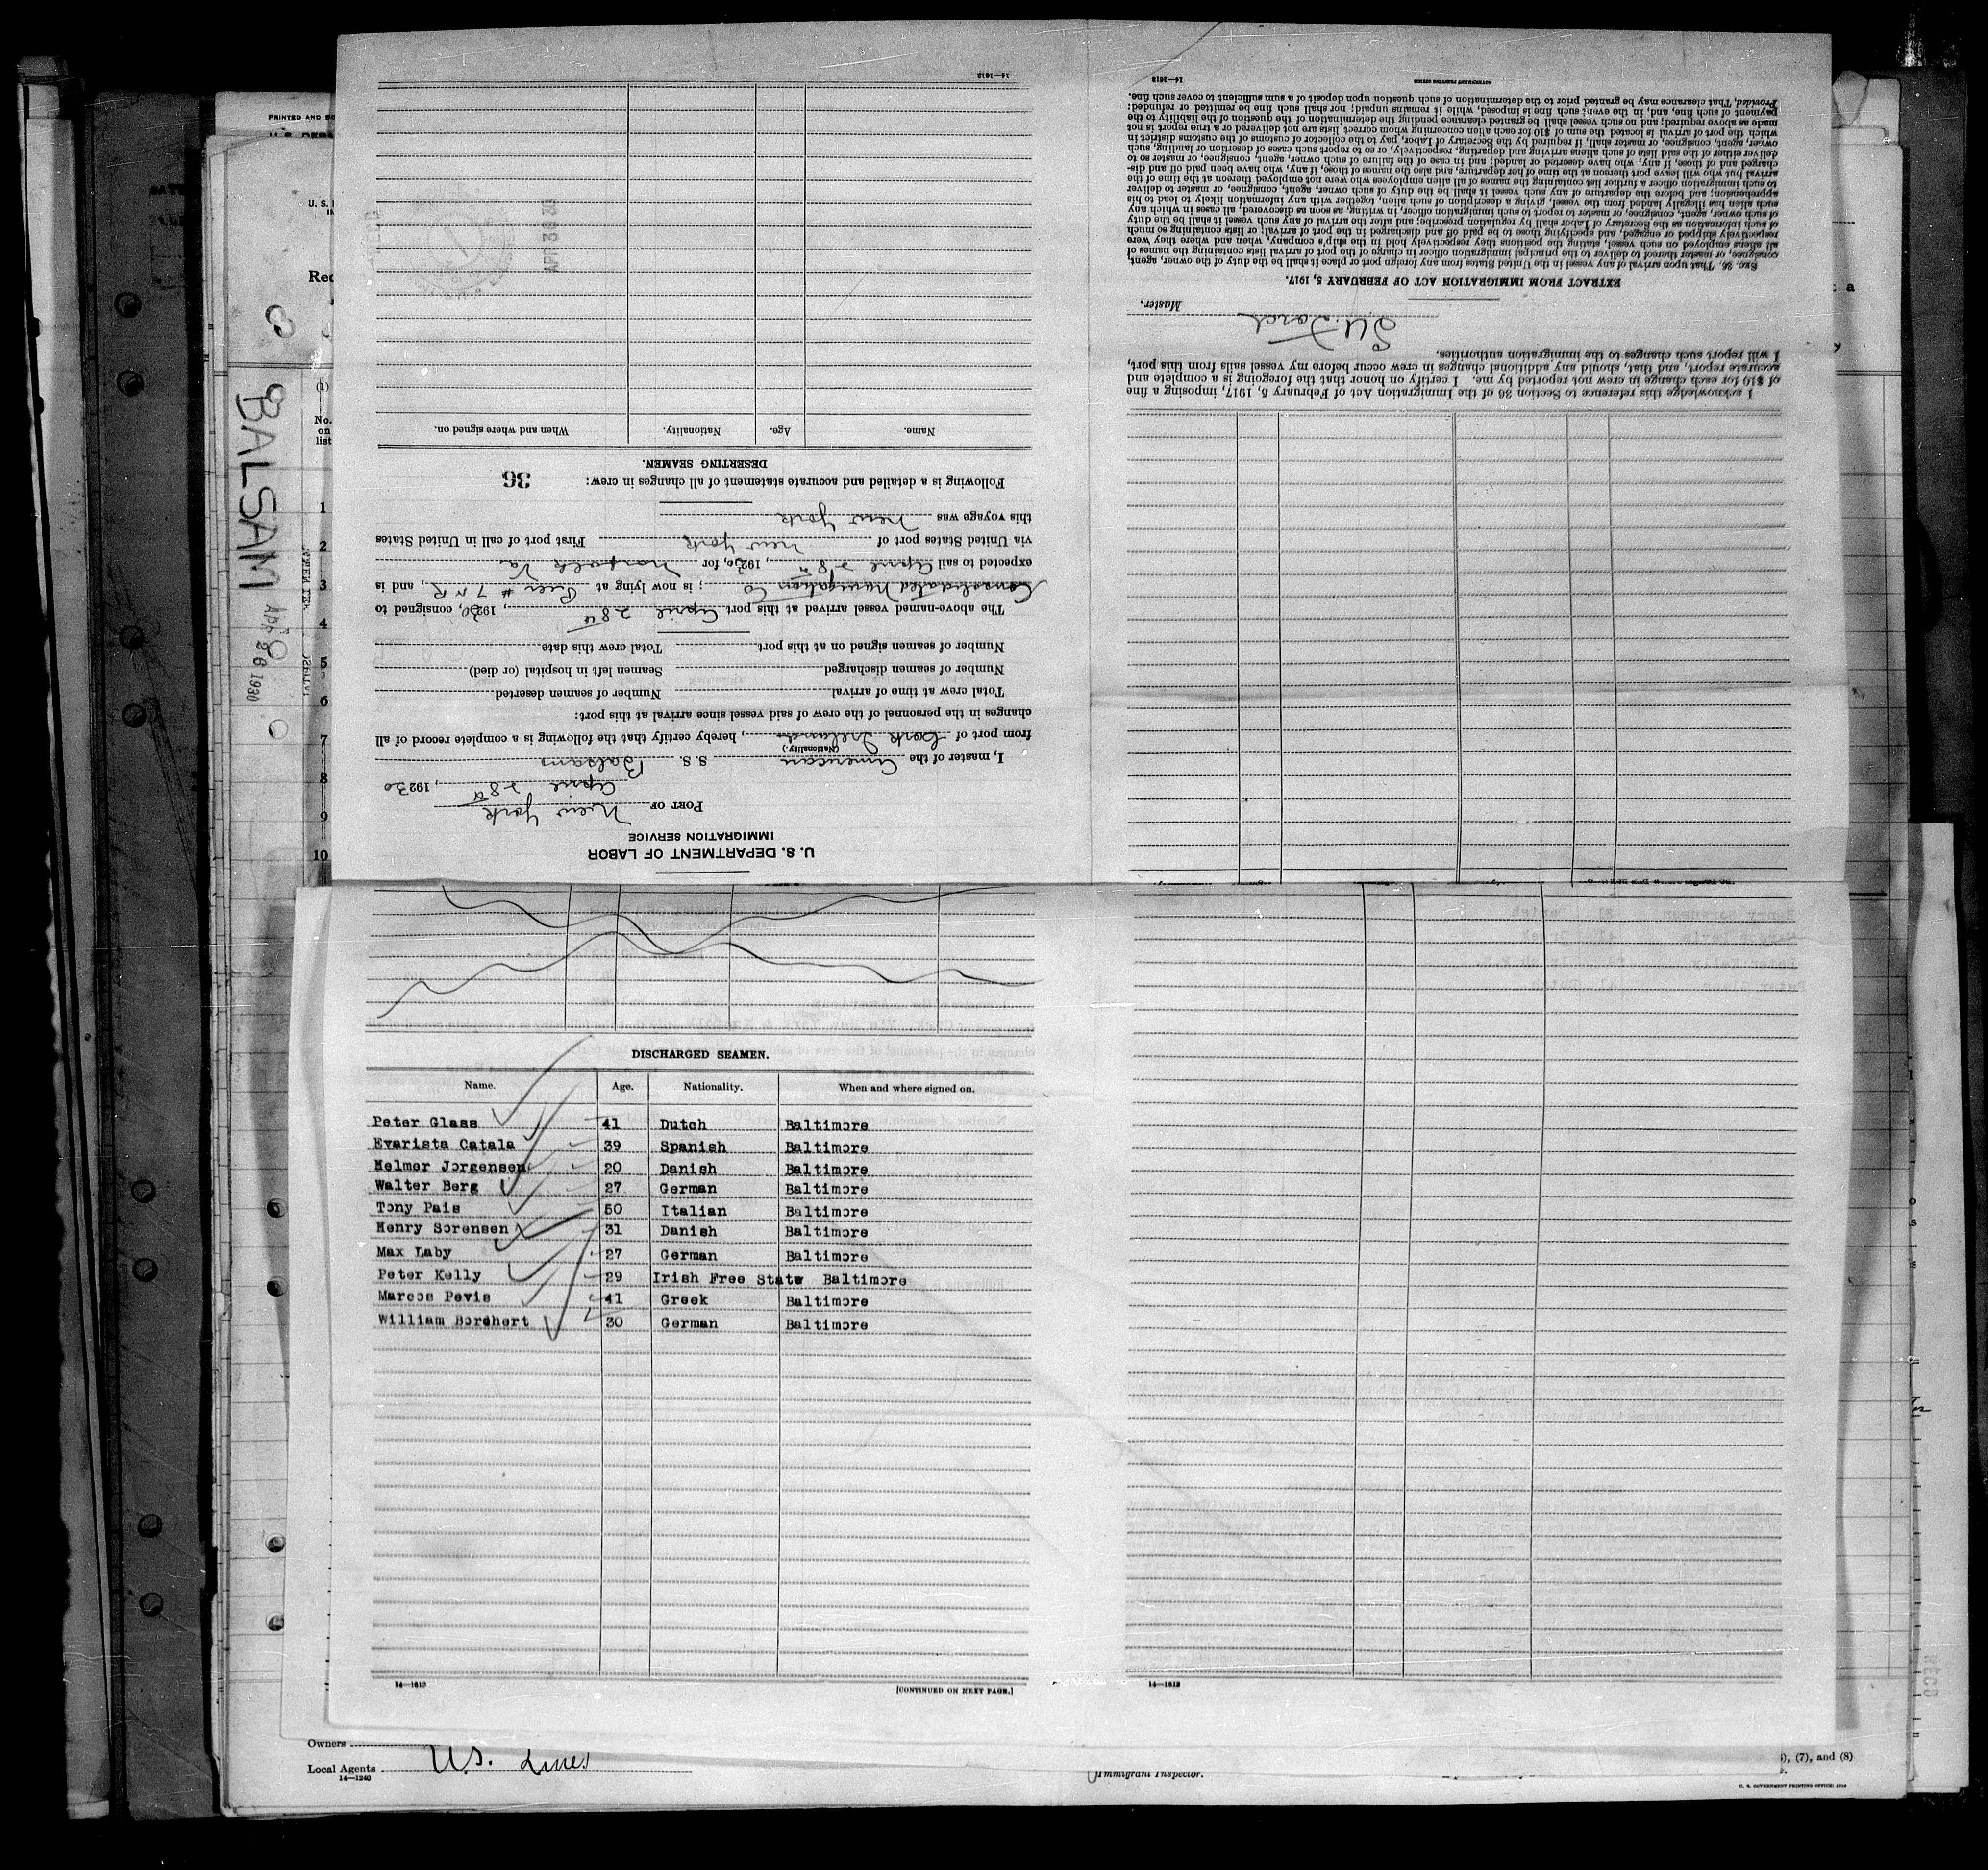 PRINTED AND
BALSAM
Apr 28 1930
Rec
No.
on
list
1
2
3
4
5
6
7
8
9
10
U. S. DEPARTMENT OF LABOR
IMMIGRATION SERVICE
PORT OF New York
April 28th, 1930
I, master of the American S. S. Balsam
(Nationality.)
from port of Cork Ireland, hereby certify that the following is a complete record of all
changes in the personnel of the crew of said vessel since arrival at this port:
Total crew at time of arrival Number of seamen deserted
Number of seamen discharged Seamen left in hospital (or died)
Number of seamen signed on at this port Total crew this date
The above-named vessel arrived at this port April 28th, 1930, consigned to
Consolidated Navigation Co; is now lying at Pier # 7 N R, and is
expected to sail April 28th, 1930, for Norfolk Va
via United States port of New York First port of call in United States
this voyage was New York
Following is a detailed and accurate statement of all changes in crew: 36
DESERTING SEAMEN.
Name. Age. Nationality. When and where signed on.
APR 30 30
14—1613
I acknowledge this reference to Section 36 of the Immigration Act of February 5, 1917, imposing a fine
of $10 for each change in crew not reported by me. I certify on honor that the foregoing is a complete and
accurate report, and that, should any additional changes in crew occur before my vessel sails from this port,
I will report such changes to the immigration authorities.
Master.
EXTRACT FROM IMMIGRATION ACT OF FEBRUARY 5, 1917.
SEC. 36. That upon arrival of any vessel in the United States from any foreign port or place it shall be the duty of the owner, agent,
consignee, or master thereof to deliver to the principal immigration officer in charge of the port of arrival lists containing the names of
all aliens employed on such vessel, stating the positions they respectively hold in the ship's company, when and where they were
respectively shipped or engaged, and specifying those to be paid off and discharged in the port of arrival; or lists containing so much
of such information as the Secretary of Labor shall by regulation prescribe; and after the arrival of any such vessel it shall be the duty
of such owner, agent, consignee, or master to report to such immigration officer, in writing, as soon as discovered, all cases in which any
such alien has illegally landed from the vessel, giving a description of such alien, together with any information likely to lead to his
apprehension; and before the departure of any such vessel it shall be the duty of such owner, agent, consignee, or master to deliver
to such immigration officer a further list containing the names of all alien employees who were not employed thereon at the time of the
arrival but who will leave port thereon at the time of her departure, and also the names of those, if any, who have been paid off and dis-
charged and of those, if any, who have deserted or landed; and in case of the failure of such owner, agent, consignee, or master so to
deliver either of the said lists of such aliens arriving and departing, respectively, or so to report such cases of desertion or landing, such
owner, agent, consignee, or master, shall, if required by the Secretary of Labor, pay to the collector of customs of the customs district in
which the port of arrival is located the sum of $10 for each alien concerning whom correct lists are not delivered or a true report is not
made as above required; and no such vessel shall be granted clearance pending the determination of the question of the liability to the
payment of such fine, and, in the event such fine is imposed, while it remains unpaid; nor shall such fine be remitted or refunded:
Provided, That clearance may be granted prior to the determination of such question upon deposit of a sum sufficient to cover such fine.
GOVERNMENT PRINTING OFFICE 14—1613
DISCHARGED SEAMEN.
Name. Age. Nationality. When and where signed on.
Peter Glass 41 Dutch Baltimore
Evarista Catala 39 Spanish Baltimore
Helmer Jorgensen 20 Danish Baltimore
Walter Berg 27 German Baltimore
Tony Pais 50 Italian Baltimore
Henry Sorensen 31 Danish Baltimore
Max Laby 27 German Baltimore
Peter Kelly 29 Irish Free State Baltimore
Marcos Pevis 41 Greek Baltimore
William Borchert 30 German Baltimore
14—1613 [CONTINUED ON NEXT PAGE.] 14—1613
Owners
Local Agents U.S. Lines
14—1240
Immigrant Inspector.
, (7), and (8)
U. S. GOVERNMENT PRINTING OFFICE